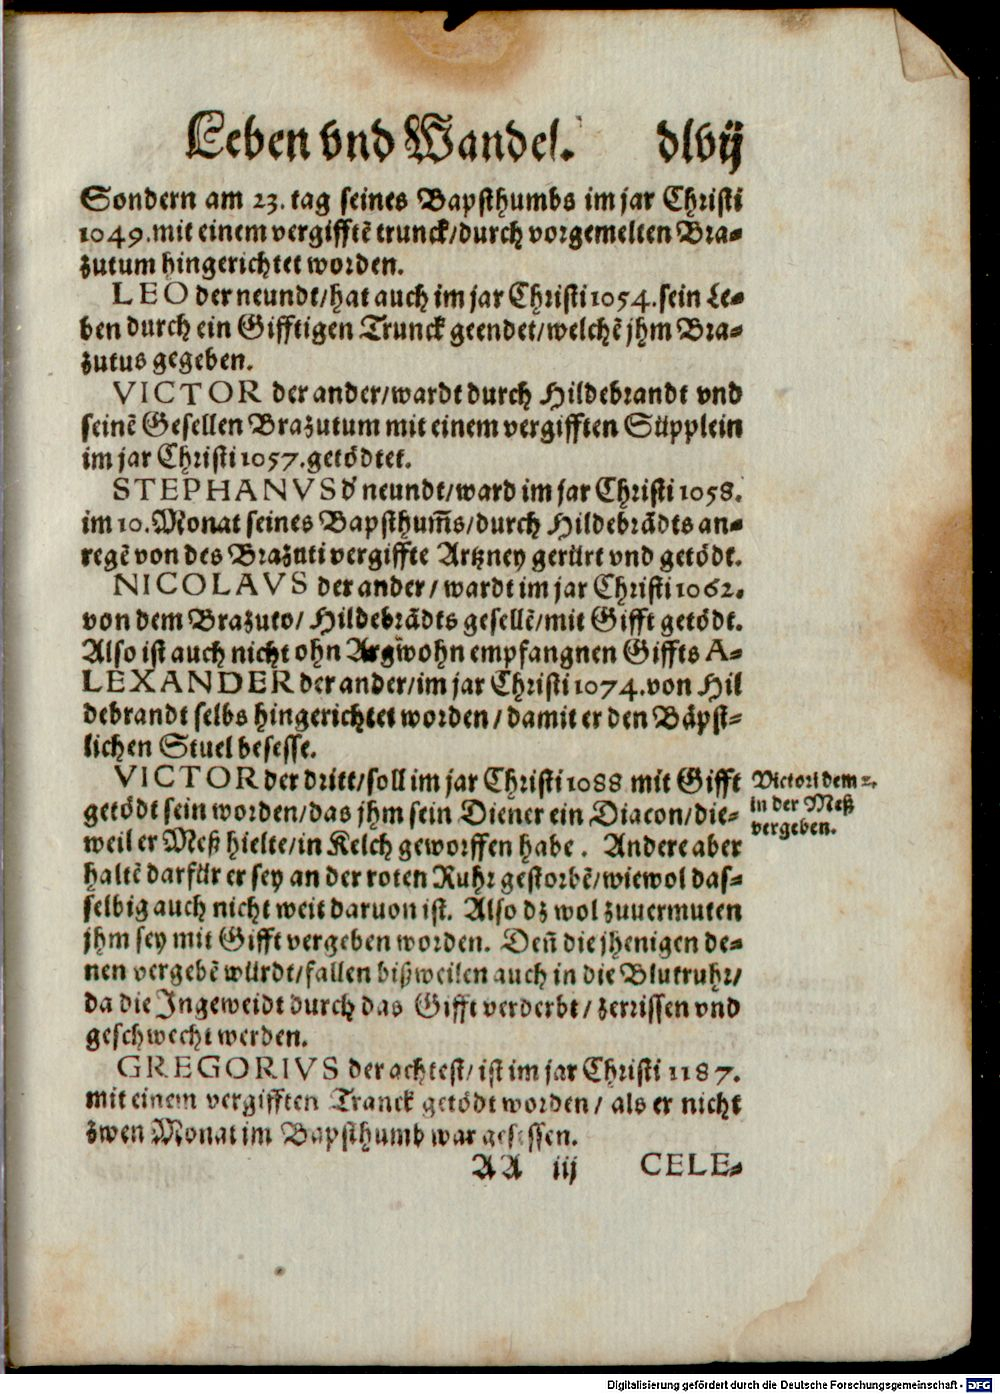 Leben vnd Wandel. dlvij
Sondern am 23. tag seines Bapsthumbs im jar Christi
1049. mit einem vergifftē trunck/durch vorgemelten Bra⸗
zutum hingerichtet worden.
LEO der neundt/hat auch im jar Christi 1054. sein Le⸗
ben durch ein Gifftigen Trunck geendet/welchē jhm Bra⸗
zutus gegeben.
VICTOR der ander/wardt durch Hildebrandt vnd
seinē Gesellen Brazutum mit einem vergifften Süpplein
im jar Christi 1057. getödtet.
STEPHANVS d' neundt/ward im jar Christi 1058.
im 10. Monat seines Bapsthum̄s/durch Hildebrādts an⸗
regē von des Brazuti vergiffte Artzney gerürt vnd getödt.
NICOLAVS der ander/ wardt im jar Christi 1062.
von dem Brazuto/ Hildebrādts gesellē/mit Gifft getödt.
Also ist auch nicht ohn Argwohn empfangnen Giffts A⸗
LEXANDER der ander/im jar Christi 1074. von Hil
debrandt selbs hingerichtet worden/damit er den Bäpst⸗
lichen Stuel besesse.
VICTOR der dritt/soll im jar Christi 1088 mit Gifft
getödt sein worden/das jhm sein Diener ein Diacon/die⸗
weil er Meß hielte/in Kelch geworffen habe. Andere aber
haltē darfür er sey an der roten Ruhr gestorbē/wiewol das⸗
selbig auch nicht weit daruon ist. Also dz wol zuuermuten
jhm sey mit Gifft vergeben worden. Den̄ die jhenigen de⸗
nen vergebē würdt/fallen bißweilen auch in die Blutruhr/
da die Ingeweidt durch das Gifft verderbt/zerrissen vnd
geschwecht werden.
GREGORIVS der achtest/ist im jar Christi 1187.
mit einem vergifften Tranck getödt worden/ als er nicht
zwen Monat im Bapsthumb war gesessen.
AA iij CELE⸗
Victori dem 2.
in der Meß
vergeben.
Digitalisierung gefördert durch die Deutsche Forschungsgemeinschaft - DFG